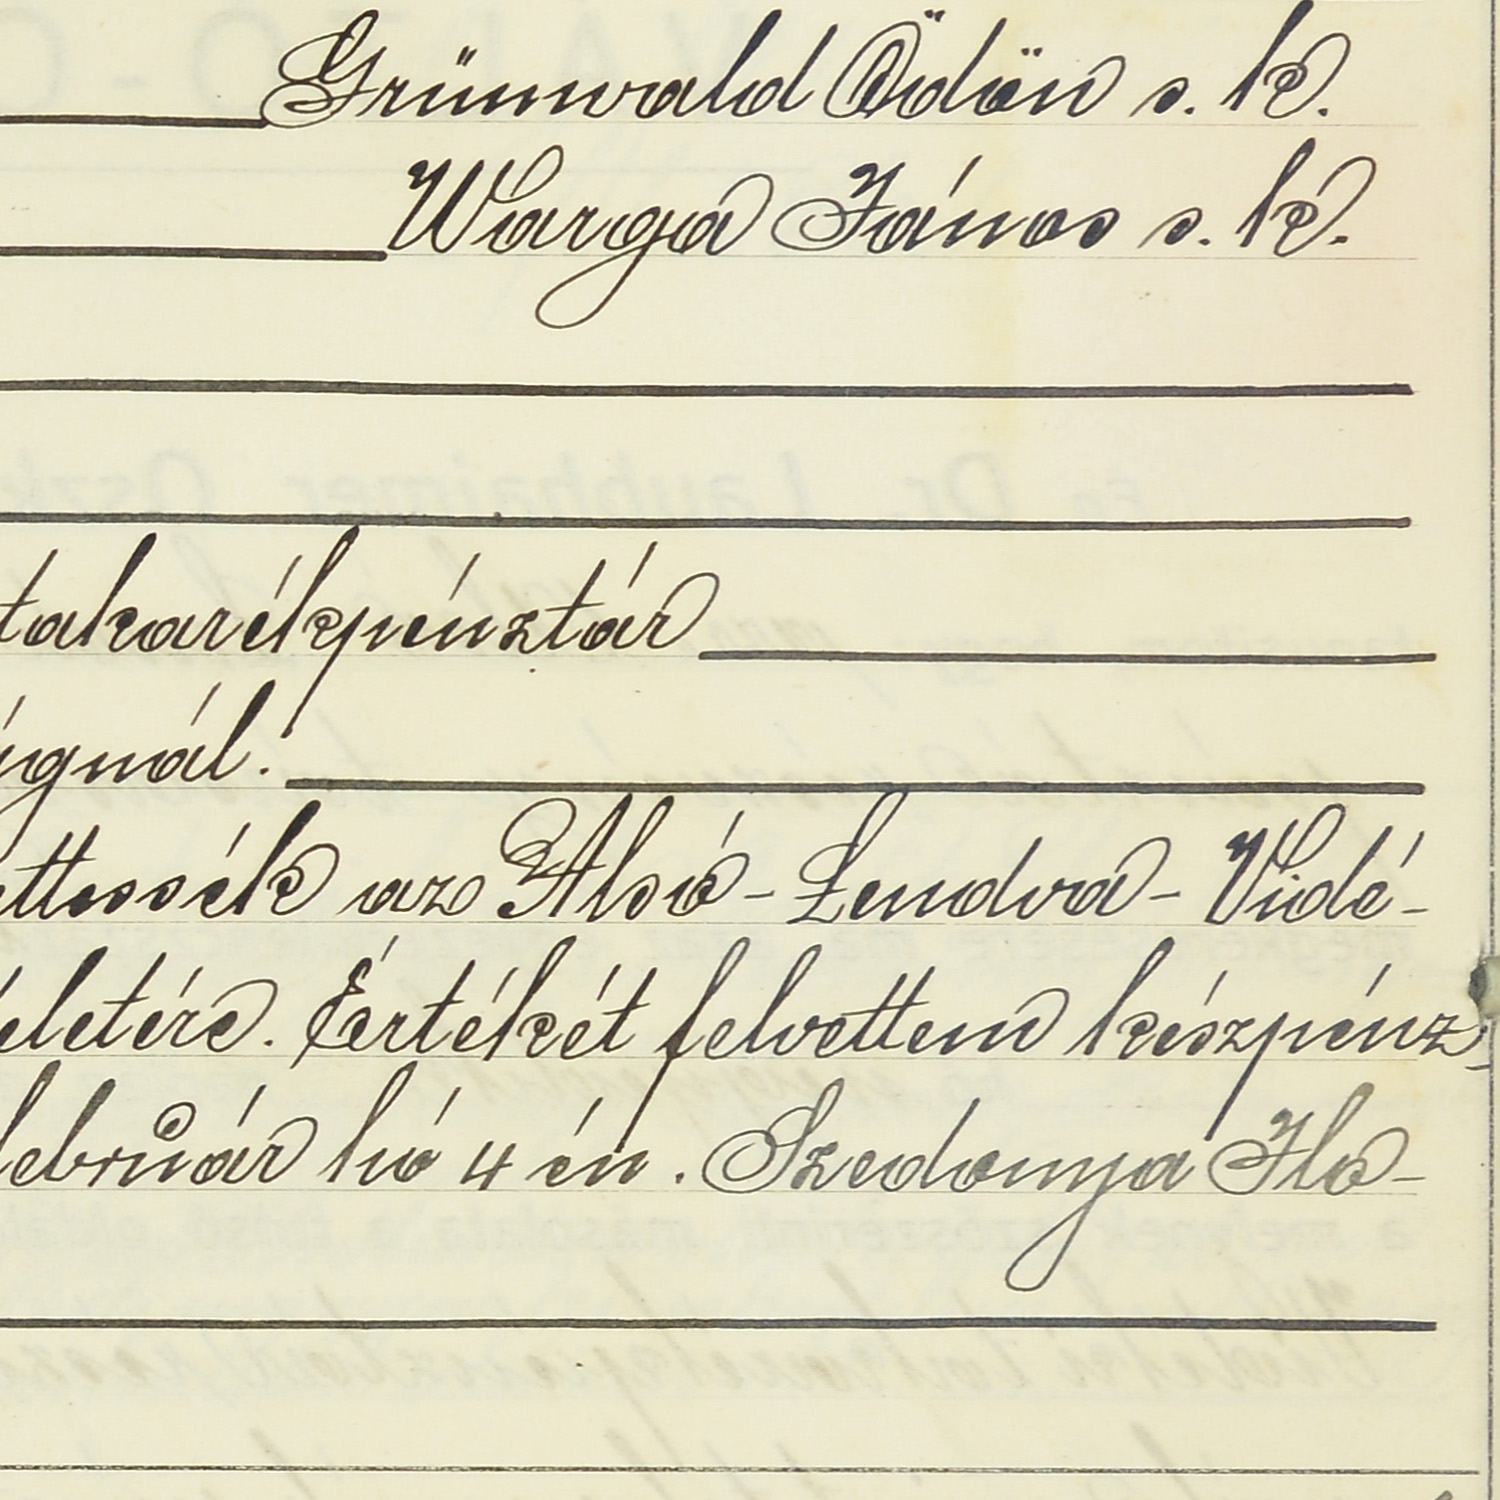 Grünwald Ödön s. k.
Warga János s. k.
takarékpénztár
ágnál.
ettessék az Alsó-Lendva-Vidé-
életére. Értékét felvettem készpénz-
február hó 4 én. Szedonya Flo-